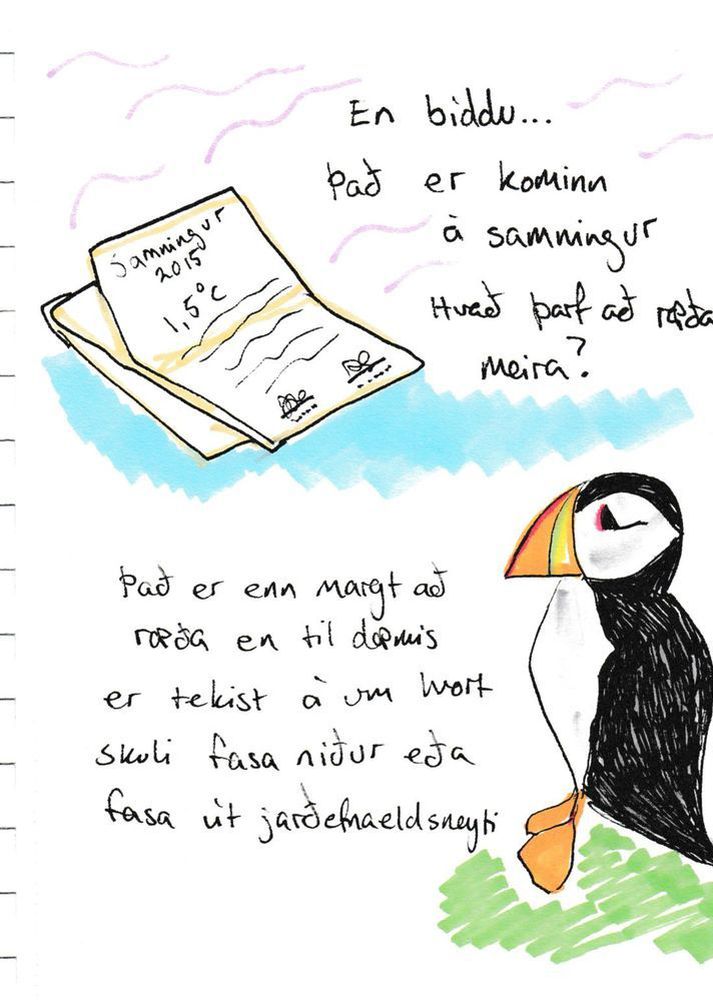 En biddu...
Það er kominn
á samningur
Hvað þarf að ræða
meira?
Samningur
2015
1,5°C
Það er enn margt að
ræða en til dæmis
er tekist á um hvort
skuli fasa niður eða
fasa út jarðefnaeldsneyti